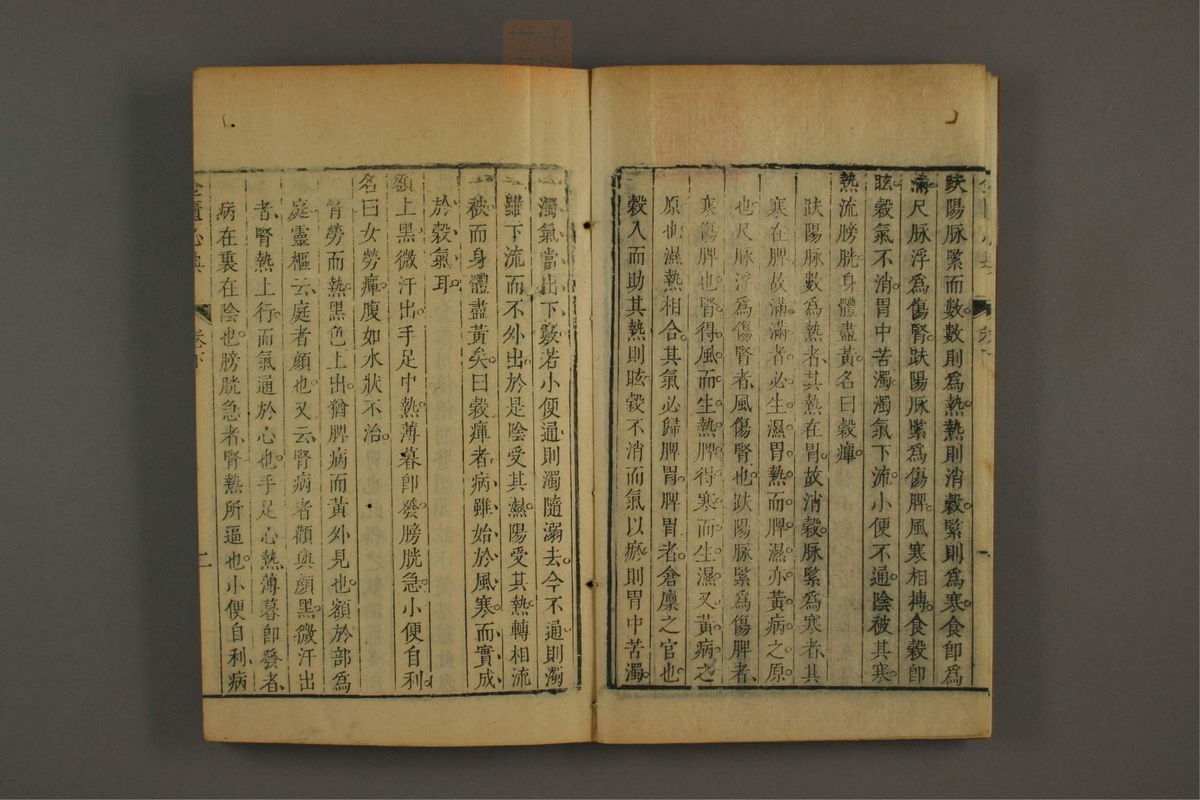 趺陽脉緊而數數則爲熱熱則消穀緊則爲寒食卽爲
滿尺脉浮爲傷腎趺陽脉緊爲傷脾風寒相摶食穀卽
眩穀氣不消胃中苦濁濁氣下流小便不通陰被其寒
熱流膀胱身體盡黃名曰穀癉
趺陽脉數爲熱者其熱在胃故消穀脉緊爲寒者其
寒在脾故滿滿者必生濕胃熱而脾濕亦黃病之原
也尺脉浮爲傷腎者風傷腎也趺陽脉緊爲傷脾者
寒傷脾也腎得風而生熱脾得寒而生濕又黃病之
原也濕熱相合其氣必歸脾胃脾胃者倉廩之官也
穀入而助其熱則眩穀不消而氣以瘀則胃中苦濁
濁氣當出下竅若小便通則濁隨溺去今不通則濁
雖下流而不外出於是陰受其濕陽受其熱轉相流
被而身體盡黃矣曰穀癉者病雖始於風寒而實成
於穀氣耳
額上黑微汗出手足中熱薄暮卽發膀胱急小便自利
名曰女勞癉腹如水狀不治
腎勞而熱黑色上出猶脾病而黃外見也額於部爲
庭靈樞云庭者顏也又云腎病者顴與顏黑微汗出
者腎熱上行而氣通於心也手足心熱薄暮卽發者
病在裏在陰也膀胱急者腎熱所逼也小便自利病
卷下
二